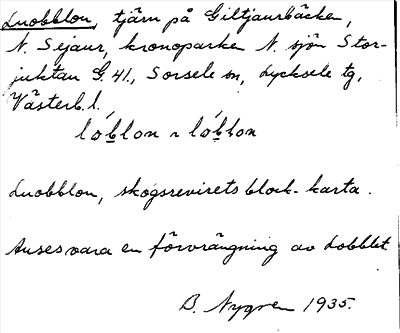 Luobblon, tjärn på Giltjaurbäcken,
N. Sejaur, kronoparken N. sjön Stor-
juktan G. 41., Sorsele sn, Lycksele tg,
Västerb. l.
lóblon ~ lòblon
Luobblon, skogsrevirets block-karta.
Anses vara en förvrängning av Lobblet.
B. Nygren 1935.